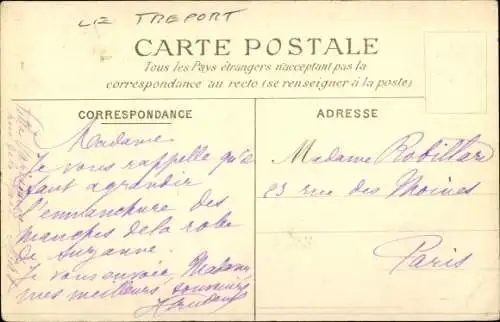 LE TREPORT
CARTE POSTALE
Tous les Pays étrangers n'acceptant pas la
correspondance au recto (se renseigner à la poste)
CORRESPONDANCE
ADRESSE
Madame
Je vous rappelle qu'il
faut agrandir
l'emmanchure des
manches de la robe
de Suzanne.
Je vous envoie, Madame,
mes meilleurs souvenirs
Madame Robillard
23 rue des Moines
Paris